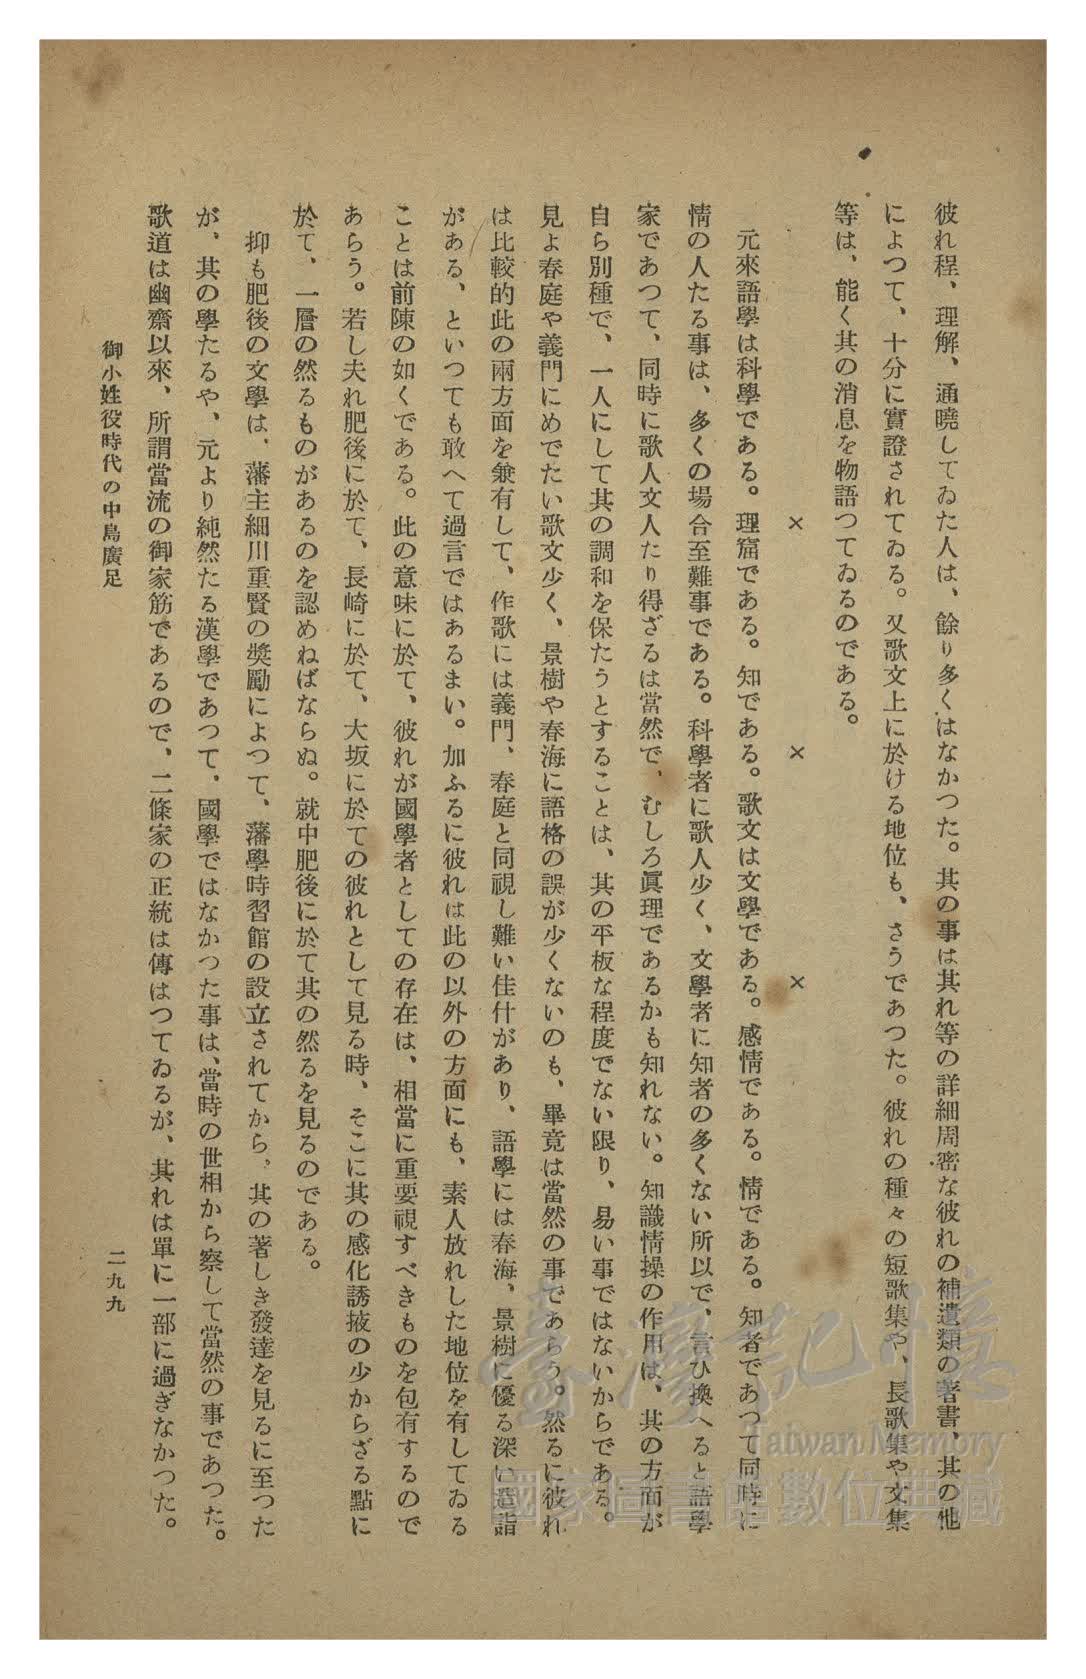 彼れ程、理解、通曉してゐた人は、餘り多くはなかつた。其の事は其れ等の詳細周密な彼れの補遺類の著書、其の他
によつて、十分に實證されてゐる。又歌文上に於ける地位も、さうであつた。彼れの種々の短歌集や、長歌集や文集
等は、能く其の消息を物語つてゐるのである。
× × ×
元來語學は科學である。理窟である。知である。歌文は文學である。感情である。情である。知者であつて同時に
情の人たる事は、多くの場合至難事である。科學者に歌人少く、文學者に知者の多くない所以で、言ひ換へると語學
家であつて、同時に歌人文人たり得ざるは當然で、むしろ眞理であるかも知れない。知識情操の作用は、其の方面が
自ら別種で、一人にして其の調和を保たうとすることは、其の平板な程度でない限り、易い事ではないからである。
見よ春庭や義門にめでたい歌文少く、景樹や春海に語格の誤が少くないのも、畢竟は當然の事であらう。然るに彼れ
は比較的此の兩方面を兼有して、作歌には義門、春庭と同視し難い佳什があり、語學には春海、景樹に優る深い造詣
がある、といつても敢へて過言ではあるまい。加ふるに彼れは此の以外の方面にも、素人放れした地位を有してゐる
ことは前陳の如くである。此の意味に於て、彼れが國學者としての存在は、相當に重要視すべきものを包有するので
あらう。若し夫れ肥後に於て、長崎に於て、大坂に於ての彼れとして見る時、そこに其の感化誘掖の少からざる點に
於て、一層の然るものがあるのを認めねばならぬ。就中肥後に於て其の然るを見るのである。
抑も肥後の文學は、藩主細川重賢の奬勵によつて、藩學時習館の設立されてから、其の著しき發達を見るに至つた
が、其の學たるや、元より純然たる漢學であつて、國學ではなかつた事は、當時の世相から察して當然の事であつた。
歌道は幽齋以來、所謂當流の御家筋であるので、二條家の正統は傳はつてゐるが、其れは單に一部に過ぎなかつた。
御小姓役時代の中島廣足
二九九
臺灣記憶
Taiwan Memory
國家圖書館數位典藏